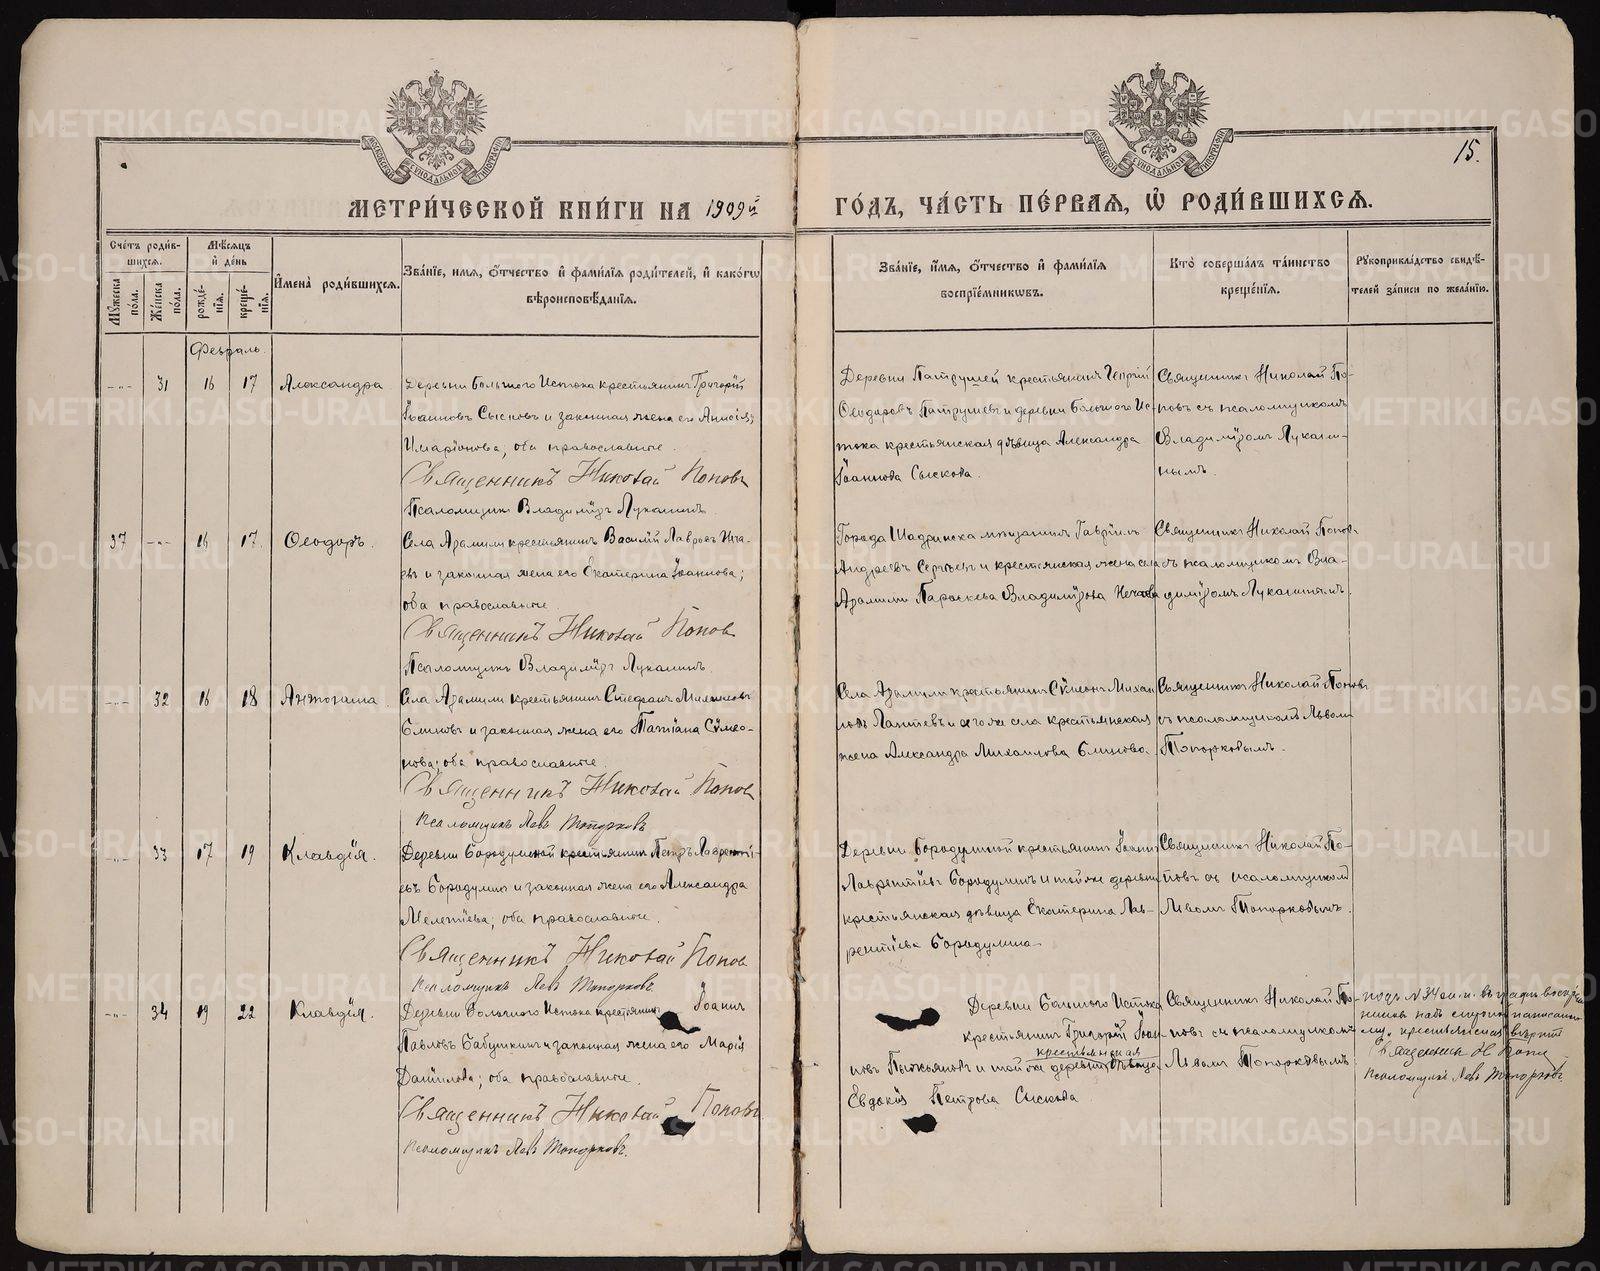 15.
МЕТРИ́ЧЕСКОЙ КНИ́ГИ НА 1909й
ГО́ДЪ, ЧА́СТЬ ПЕ́РВАЯ, Ѽ РОДИ́ВШИХСѦ.
Сче́тъ роди́в-
шихсѧ.
Мꙋ́жеска по́ла.
Же́нска по́ла.
Мѣ́сѧцъ и҆ де́нь
рожде́-
нїѧ.
креще́-
нїѧ.
И҆мена̀ роди́вшихсѧ.
Зва́нїе, и́мѧ, ѻ҆́тчество и҆ фами́лїѧ роди́телей, и҆ како́гѡ
вѣроисповѣ́данїѧ.
Зва́нїе, и҆́мѧ, ѻ҆́тчество и҆ фами́лїѧ
воспрїе́мникѡвъ.
Кто̀ соверша́лъ та́инство
креще́нїѧ.
Рꙋкоприкла́дство свидѣ́-
телей за́писи по жела́нїю.
Февраль.
-"- 31 16 17 Александра
Деревни Большого Истока крестьянинъ Григорій
Іоанновъ Сысковъ и законная жена его Анисія
оба православные.
Священникъ Николай Поповъ
Псаломщикъ Владиміръ Луканинъ.
Деревни Патрушей крестьянинъ Георгій
Ѳеодоровъ Патрушевъ и деревни Большого Ис-
тока крестьянская дѣвица Александра
Іоаннова Сыскова.
Священникъ Николай По-
повъ съ псаломщикомъ
Владиміромъ Лукани-
нымъ.
37 -"- 16 17. Ѳеодоръ.
Села Арамили крестьянинъ Василій Лавровъ Неча-
евъ и законная жена его Екатерина Іоаннова;
оба православные.
Священникъ Николай Попов
Псаломщикъ Владиміръ Луканинъ.
Города Шадринска мещанинъ Гавріилъ
Андреевъ Сергѣевъ и крестьянская жена села
Арамили Параскева Владимірова Нечаева
Священникъ Николай Попов-
ъ съ псаломщикомъ Вла-
диміромъ Луканинымъ.
-"- 32 16 18 Антонина
Села Арамили крестьянинъ Стефанъ Михаиловъ
Блиновъ и законная жена его Татіана Сѵмео-
нова; оба православные.
Священникъ Николай Попов
Псаломщикъ Левъ Топорковъ
Села Арамили крестьянинъ Сѵмеонъ Михаи-
ловъ Лаптевъ и того же села крестьянская
жена Александра Михаилова Блинова.
Священникъ Николай Поповъ
съ псаломщикомъ Львомъ
Топорковымъ.
-"- 33 17 19 Клавдія.
Деревни Бородулиной крестьянинъ Петръ Лаврентi-
евъ Бородулинъ и законная жена его Александра
Мелетіева; оба православные.
Священникъ Николай Попов
Псаломщикъ Левъ Топорковъ.
Деревни Бородулиной крестьянинъ Іоаннъ
Лаврентіевъ Бородулинъ и той же деревни
крестьянская дѣвица Екатерина Лав-
рентіева Бородулина.
Священникъ Николай По-
повъ съ псаломщикомъ
Львомъ Топорковымъ.
-"- 34 19 22 Клавдія.
Деревни Большого Истока крестьянинъ Іоаннъ
Павловъ Бабушкинъ и законная жена его Марія
Даніилова; оба православные.
Священникъ Николай Поповъ
Псаломщикъ Левъ Топорковъ.
Деревни Большого Истока
крестьянинъ Григорій Іоан-
новъ и той же деревни крестьянская дѣвица
Евдокія Петрова Сыскова.
Священникъ Николай По-
повъ съ псаломщикомъ
Львомъ Топорковымъ.
подъ №34 въ графѣ воспрі-
надъ строкой написанно-
му „крестьянская" вѣрить
Священник Н Попов
Псаломщикъ Левъ Топорковъ
METRIKI.GASO-URAL.RU